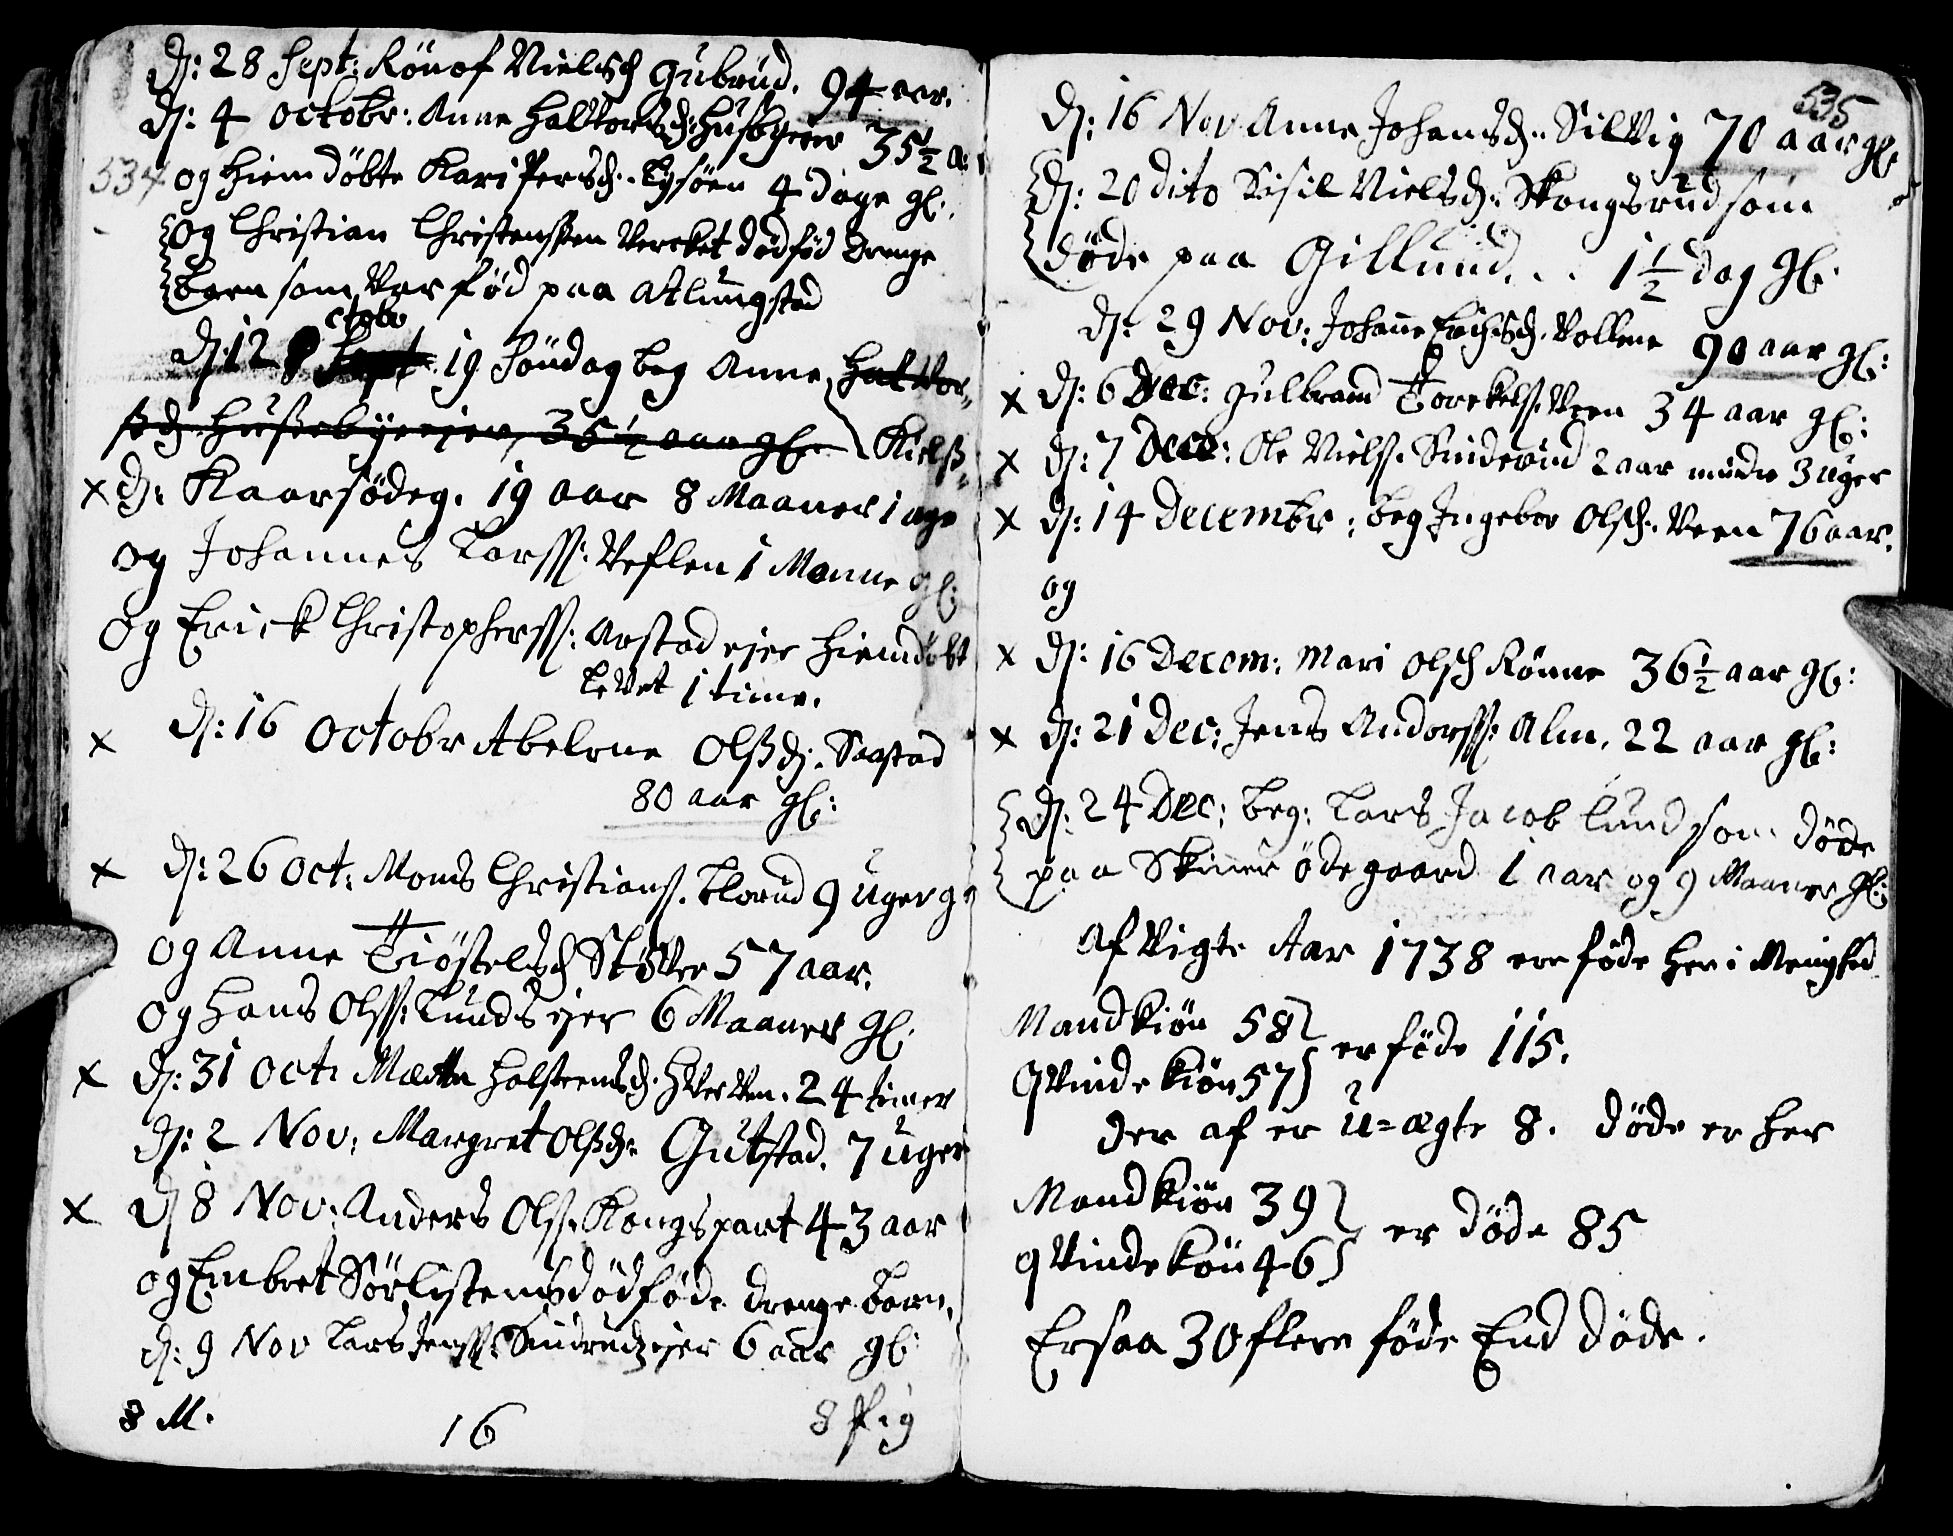 D: 28 Sept: Rönof Nielsd Gubrud. 94 aar.
D: 4 Octobr: Anne Halvorsd: Husbyeier 35 1/2 a:
534
og hiemdöbte Kari Persd. Lysöen 4 dage gl.
og Christian Christensen Verket dödfød drenge
barn som var fød paa Atlungstad
ctobr
D: 12 Sept. 19 Söndag beg Anne Halvor=
sd. Hussebyeejer, 35 1/2 aar gl. Nielss
x D: Kaarsödeg. 19 aar 8 Maaner 1 uge
og Johannes Larss: Veflen 1 Maane gl:
og Erick Christopherss: Arstad ejer hiemdöbt
levet 1 time.
x D: 16 Octobr Abelone Olssd. Sagstad
80 aar gl:
x D: 26 Oct: Mons Christians. Blorud 9 Uger g
og Anne Tiöstelsd Stöver 57 aar.
og Hans Olss: Lunds ejer 6 Maaner gl.
x D: 31 Oct: Mætte Halsteensd. Hverven. 24 timer
D: 2 Nov: Margret Olssd. Gutstad. 7 uger
x D 8 Nov: Anders Olss. Kongspart 43 aar
og Embret Sörlistens dödføde drenge barn.
D: 9 Nov Lars Jenss: Sindrudejer 6 aar gl:
8 M. 16 8 pig
535
D: 16 Nov Anne Johansd. Silvig 70 aar gl:
D: 20 dito Sisil Nielsd: Skongsrud som
døde paa Gillund. . . 1 1/2 dag gl.
D: 29 Nov: Johanne Erichsd. Vollene 90 aar gl:
x D: 6 Dec: Gulbrand Torckelss. Veen 34 aar gl:
x D: 7 Dece: Ole Nielss. Sinderud 2 aar mindre 3 uger
x D: 14 Decembr: beg Ingebor Olsd. Veen 76 aar.
og
x D: 16 Decem: Mari Olsd Rønne 36 1/2 aar gl:
x D: 21 Dec: Jens Anderss: Alm. 22 aar gl:
D: 24 Dec: beg: Lars Jacob Lund som døde
paa Skiner ödegaard 1 aar og 9 Maaner gl:
Afvigte Aar 1738 ere føde her i Menighed
Mandkiön 58
er føde 115.
Qvindekiön 57
der af er u=ægte 8. døde er her
Mandkiön 39
er døde 85
qvindekön 46
Er saa 30 flere føde End døde.